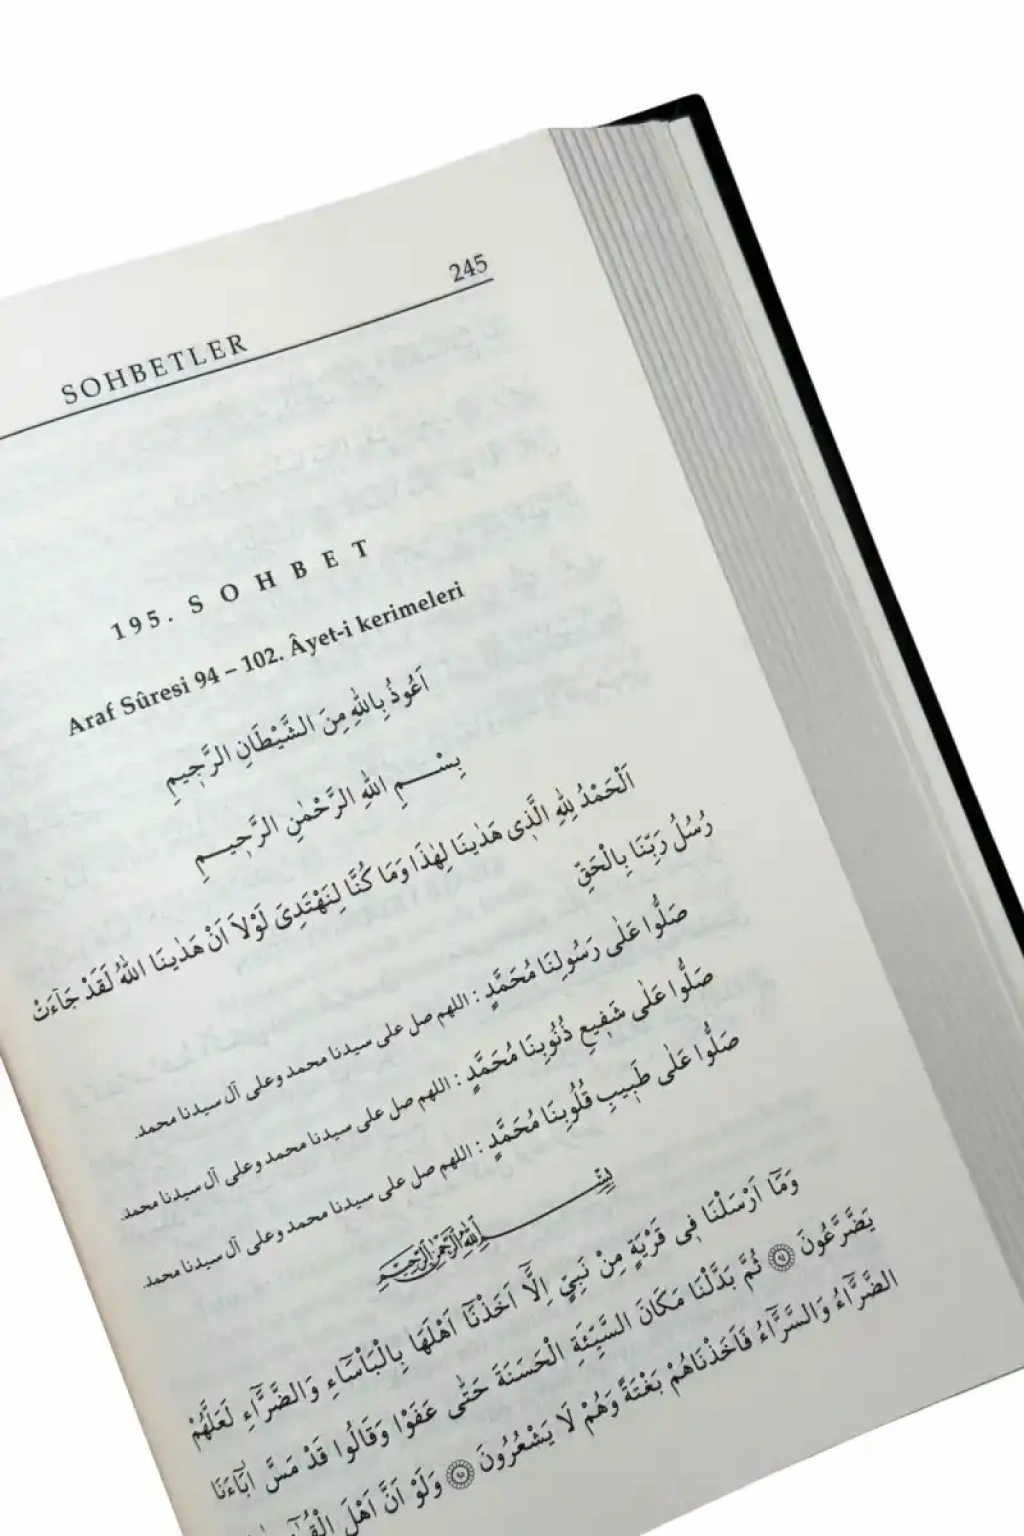 245
SOHBETLER
195. SOHBET
Araf Sûresi 94 – 102. Âyet-i kerimeleri
اَعُوذُ بِاللّٰهِ مِنَ الشَّيْطَانِ الرَّجٖيمِ
بِسْمِ اللّٰهِ الرَّحْمٰنِ الرَّحٖيمِ
اَلْحَمْدُ لِلّٰهِ الَّذٖى هَدٰينَا لِهٰذَا وَمَا كُنَّا لِنَهْتَدِىَ لَوْلَا اَنْ هَدٰينَا اللّٰهُ لَقَدْ جَاءَتْ
رُسُلُ رَبِّنَا بِالْحَقِّ
صَلُّوا عَلٰى رَسُولِنَا مُحَمَّدٍ : اللهم صل على سيدنا محمد وعلى آل سيدنا محمد.
صَلُّوا عَلٰى شَفٖيعِ ذُنُوبِنَا مُحَمَّدٍ : اللهم صل على سيدنا محمد وعلى آل سيدنا محمد.
صَلُّوا عَلٰى طَبٖيبِ قُلُوبِنَا مُحَمَّدٍ : اللهم صل على سيدنا محمد وعلى آل سيدنا محمد.
بِسْمِ اللّٰهِ الرَّحْمٰنِ الرَّحٖيمِ
وَمَٓا اَرْسَلْنَا فٖى قَرْيَةٍ مِنْ نَبِىٍّ اِلَّٓا اَخَذْنَٓا اَهْلَهَا بِالْبَاْسَٓاءِ وَالضَّرَّٓاءِ لَعَلَّهُمْ
يَضَّرَّعُونَ ﴿٩٤﴾ ثُمَّ بَدَّلْنَا مَكَانَ السَّيِّئَةِ الْحَسَنَةَ حَتّٰى عَفَوْا وَقَالُوا قَدْ مَسَّ اٰبَٓاءَنَا
الضَّرَّٓاءُ وَالسَّرَّٓاءُ فَاَخَذْنَاهُمْ بَغْتَةً وَهُمْ لَا يَشْعُرُونَ ﴿٩٥﴾ وَلَوْ اَنَّ اَهْلَ